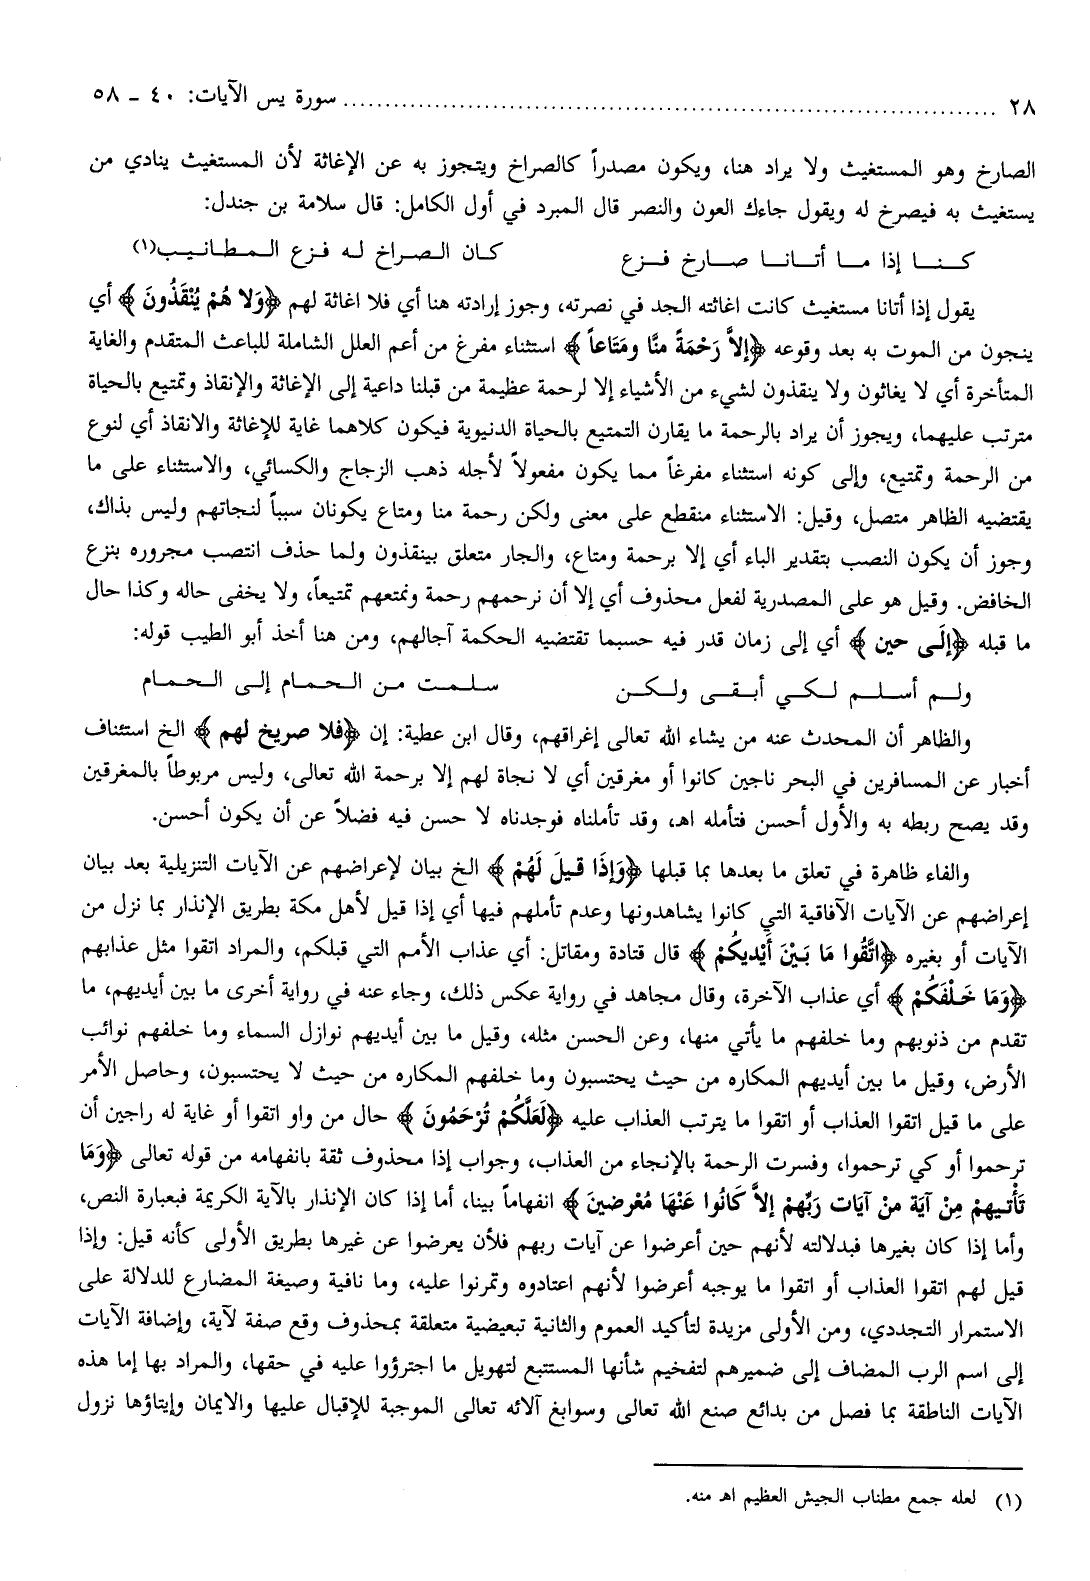 ٢٨ ........................ سورة يس الآيات: ٤٠ - ٥٨
الصارخ وهو المستغيث ولا يراد هنا، ويكون مصدراً كالصراخ ويتجوز به عن الإغاثة لأن المستغيث ينادي من
يستغيث به فيصرخ له ويقول جاءك العون والنصر قال المبرد في أول الكامل: قال سلامة بن جندل:
كنا إذا ما أتانا صارخ فزع كان الصراخ له فزع المطانيب(١)
يقول إذا أتانا مستغيث كانت اغاثته الجد في نصرته، وجوز إرادته هنا أي فلا اغاثة لهم ﴿وَلا هُمْ يُنْقَذُونَ﴾ أي
ينجون من الموت به بعد وقوعه ﴿إلاَّ رَحْمَةً منَّا ومَتَاعاً﴾ استثناء مفرغ من أعم العلل الشاملة للباعث المتقدم والغاية
المتأخرة أي لا يغاثون ولا ينقذون لشيء من الأشياء إلا لرحمة عظيمة من قبلنا داعية إلى الإغاثة والإنقاذ وتمتيع بالحياة
مترتب عليهما، ويجوز أن يراد بالرحمة ما يقارن التمتيع بالحياة الدنيوية فيكون كلاهما غاية للإغاثة والانقاذ أي لنوع
من الرحمة وتمتيع، وإلى كونه استثناء مفرغاً مما يكون مفعولاً لأجله ذهب الزجاج والكسائي، والاستثناء على ما
يقتضيه الظاهر متصل، وقيل: الاستثناء منقطع على معنى ولكن رحمة منا ومتاع يكونان سبباً لنجاتهم وليس بذاك،
وجوز أن يكون النصب بتقدير الباء أي إلا برحمة ومتاع، والجار متعلق بينقذون ولما حذف انتصب مجروره بنزع
الخافض. وقيل هو على المصدرية لفعل محذوف أي إلا أن نرحمهم رحمة ونمتعهم تمتيعاً، ولا يخفى حاله وكذا حال
ما قبله ﴿إلَى حين﴾ أي إلى زمان قدر فيه حسبما تقتضيه الحكمة آجالهم، ومن هنا أخذ أبو الطيب قوله:
ولم أسلم لكي أبقى ولكن سلمت من الحمام إلى الحمام
والظاهر أن المحدث عنه من يشاء الله تعالى إغراقهم، وقال ابن عطية: إن ﴿فلا صريخ لهم﴾ الخ استئناف
أخبار عن المسافرين في البحر ناجين كانوا أو مغرقين أي لا نجاة لهم إلا برحمة الله تعالى، وليس مربوطاً بالمغرقين
وقد يصح ربطه به والأول أحسن فتأمله اهـ، وقد تأملناه فوجدناه لا حسن فيه فضلاً عن أن يكون أحسن.
والفاء ظاهرة في تعلق ما بعدها بما قبلها ﴿وَإذَا قيلَ لَهُمْ﴾ الخ بيان لإعراضهم عن الآيات التنزيلية بعد بيان
إعراضهم عن الآيات الآفاقية التي كانوا يشاهدونها وعدم تأملهم فيها أي إذا قيل لأهل مكة بطريق الإنذار بما نزل من
الآيات أو بغيره ﴿اتَّقُوا مَا بَيْنَ أَيْديكُمْ﴾ قال قتادة ومقاتل: أي عذاب الأمم التي قبلكم، والمراد اتقوا مثل عذابهم
﴿وَمَا خَلْفَكُمْ﴾ أي عذاب الآخرة، وقال مجاهد في رواية عكس ذلك، وجاء عنه في رواية أخرى ما بين أيديهم، ما
تقدم من ذنوبهم وما خلفهم ما يأتي منها، وعن الحسن مثله، وقيل ما بين أيديهم نوازل السماء وما خلفهم نوائب
الأرض، وقيل ما بين أيديهم المكاره من حيث يحتسبون وما خلفهم المكاره من حيث لا يحتسبون، وحاصل الأمر
على ما قيل اتقوا العذاب أو اتقوا ما يترتب العذاب عليه ﴿لَعَلَّكُمْ تُرْحَمُونَ﴾ حال من واو اتقوا أو غاية له راجين أن
ترحموا أو كي ترحموا، وفسرت الرحمة بالإنجاء من العذاب، وجواب إذا محذوف ثقة بانفهامه من قوله تعالى ﴿وَمَا
تَأْتيهمْ مِنْ آيَة منْ آيَات رَبِّهمْ إلاَّ كَانُوا عَنْهَا مُعْرضينَ﴾ انفهاماً بينا، أما إذا كان الإنذار بالآية الكريمة فبعبارة النص،
وأما إذا كان بغيرها فبدلالته لأنهم حين أعرضوا عن آيات ربهم فلأن يعرضوا عن غيرها بطريق الأولى كأنه قيل: وإذا
قيل لهم اتقوا العذاب أو اتقوا ما يوجبه أعرضوا لأنهم اعتادوه وتمرنوا عليه، وما نافية وصيغة المضارع للدلالة على
الاستمرار التجددي، ومن الأولى مزيدة لتأكيد العموم والثانية تبعيضية متعلقة بمحذوف وقع صفة لآية، وإضافة الآيات
إلى اسم الرب المضاف إلى ضميرهم لتفخيم شأنها المستتبع لتهويل ما اجترؤوا عليه في حقها، والمراد بها إما هذه
الآيات الناطقة بما فصل من بدائع صنع الله تعالى وسوابغ آلائه تعالى الموجبة للإقبال عليها والايمان وإيتاؤها نزول
(١) لعله جمع مطناب الجيش العظيم اهـ منه.